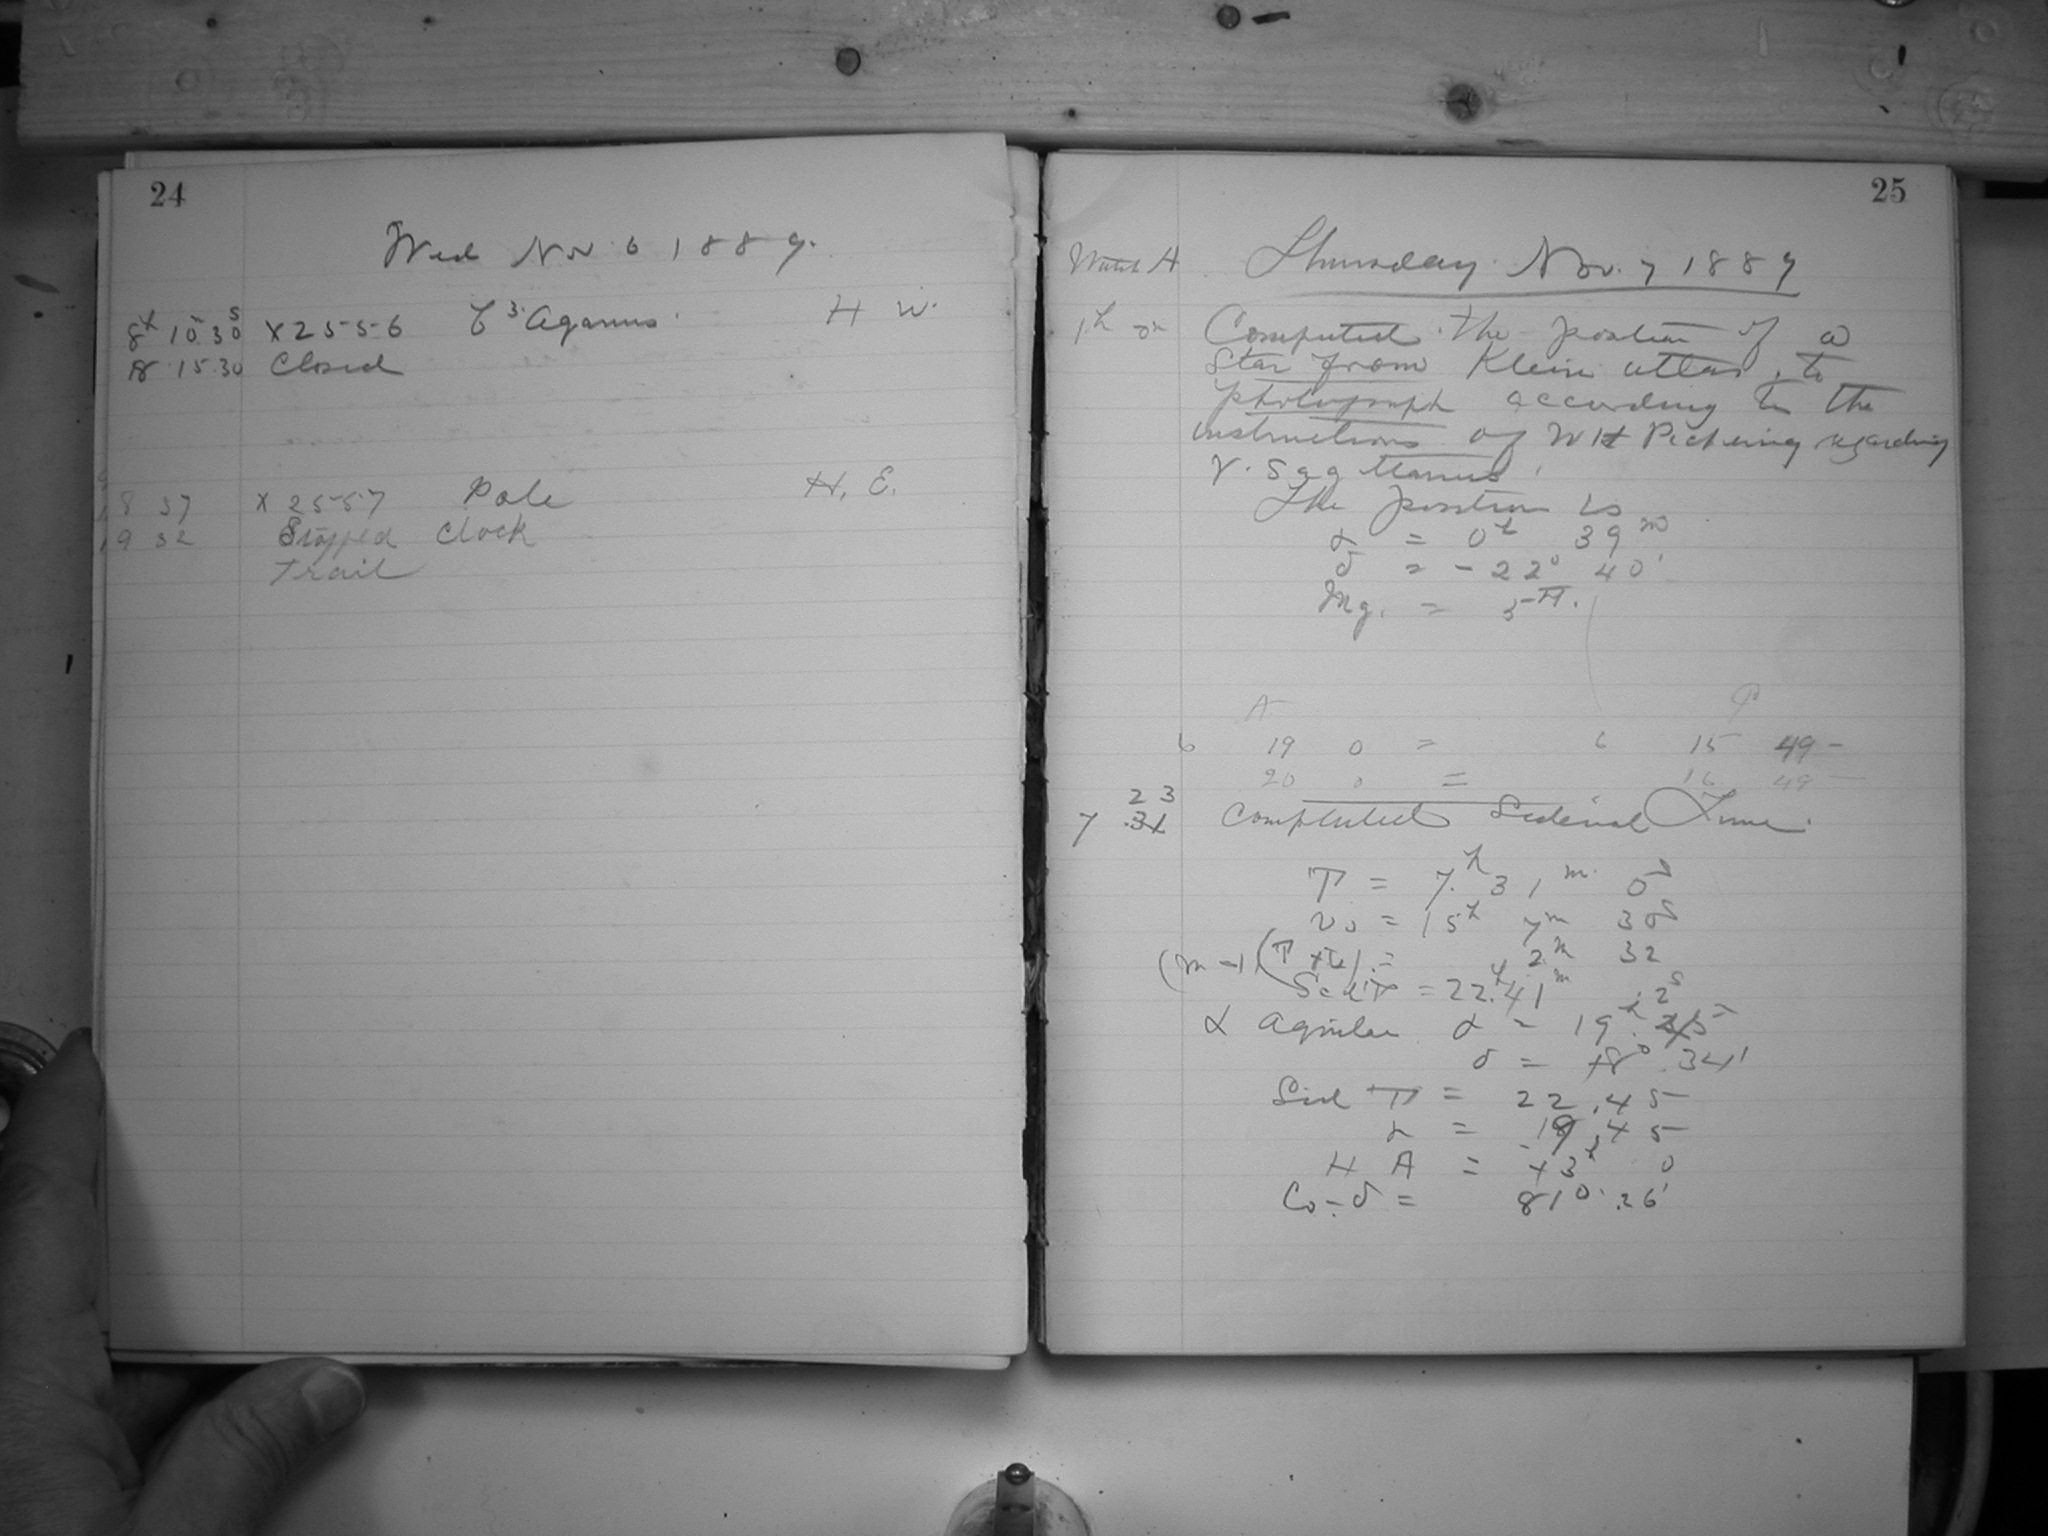 24
Wed Nov 6 1889.
8h 10m 30s X2556 C3 Aquarius. H W.
8 15.30 Closed
18 37 X 2557 Pole H. E.
19 32 Stopped Clock
Trail
25
Watch A Thursday Nov. 7 1889
1h 0m Computed the position of a
Star from Klein atlas, to
photograph according to the
instructions of W H Pickering regarding
γ. Sagittarius.
The position is
α = 0h 39m
δ = -22° 40'
Mg. = 5
A P
6 19 0 = 6 15 49-
20 0 = 16 49-
23
7 31 Computed Siderial Time.
T = 7h 31m 0s
vo = 15h 7m 30s
(m-1)(T+L) = 2m 32
Sid T = 22h 41m 2s
α Aquilae α = 19h 45
δ = +8° 34'
Sid T = 22.45
α = -19.45
H A = +3h 0
Co-δ = 81° 26'